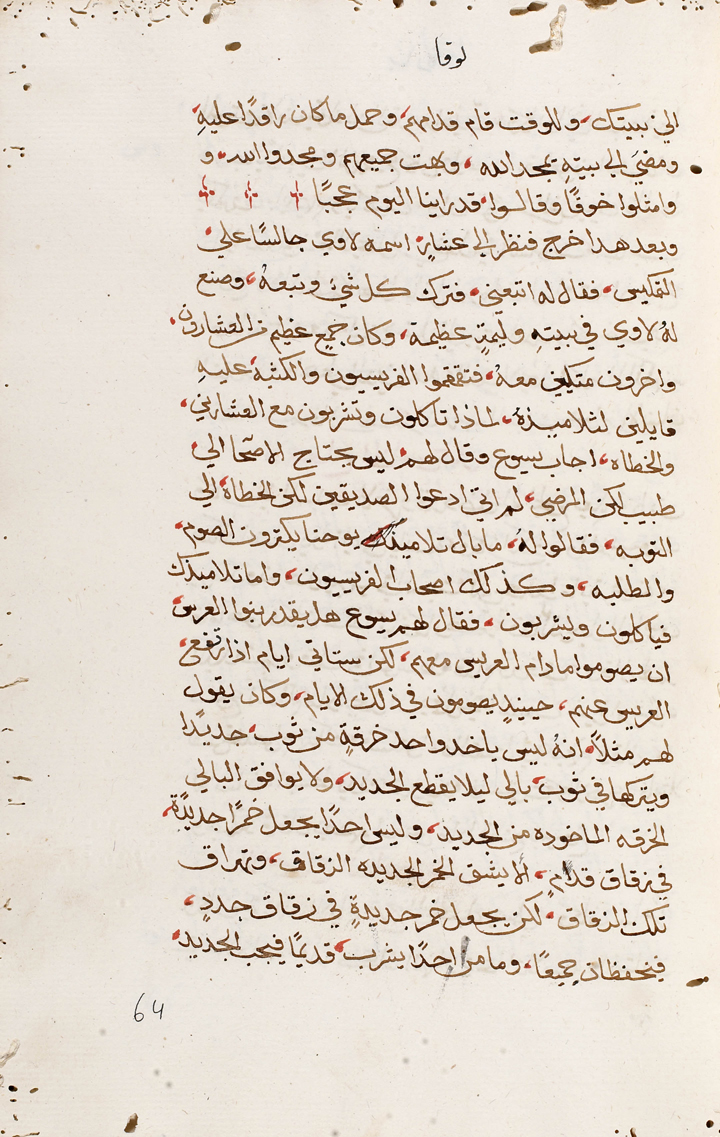 لوقا
الي بيتك، وللوقت قام قدامهم، وحمل ما كان راقدًا عليهِ
ومضيَ الي بيتهِ يمجد الله، وبهت جميعهم ومجدوا الله، و
وامثلوا خوفًا وقالوا، قد راينا اليوم عجبًا
وبعد هدا خرج فنظر الي عشارٍ اسمه لاوي جالسًا علي
المكيس، فقال له اتبعني، فترك كل شيْ وتبعهُ، وصنع
لهُ لاوي في بيتهِ وليمةٍ عظيمة، وكان جمع عظيم من العشارون،
واخرون متكين معهُ، فتقمقموا الفريسيون والكتبة عليهِ
قايلين لتلاميذهُ، لماذا تاكلون وتشربون مع العشارين،
والخطاه، اجاب يسوع وقال لهم ليس يحتاج الاصحا الي
طبيب لكن المرضي، لم اتي ادعوا الصديقين لكن الخطاة الي
التوبه، فقالوا لهُ، ما بال تلاميذ يوحنا يكترون الصوم،
والطلبه، وكذلك اصحاب الفريسيون، واما تلاميذك
فياكلون ويشربون، فقال لهم يسوع هل يقدر بنوا العرس
ان يصوموا ما دام العريس معهم، لكن ستاتي ايام اذا ارتفع
العريس عنهم، حينيدٍ يصومون في ذلك الايام، وكان يقول
لهم مثلاً، انهُ ليس ياخد واحد خرقةٍ من ثوب جديدًا
ويتركها في ثوب بالي ليلا يقطع الجديد، ولا يوافق البالي
الخرقه الماخوده من الجديد، وليس احدًا يجعل خمرًا جديدة،
في زقاق قدامٍ، الا يشق الخمر الجديده الزقاق، وتهراق
تلك الزقاق، لكن يجعل خمر جديدةٍ في زقاق جددٍ،
فيتحفظان جميعًا، وما من احدًا يشرب قديمًا فيحب الجديد،
64